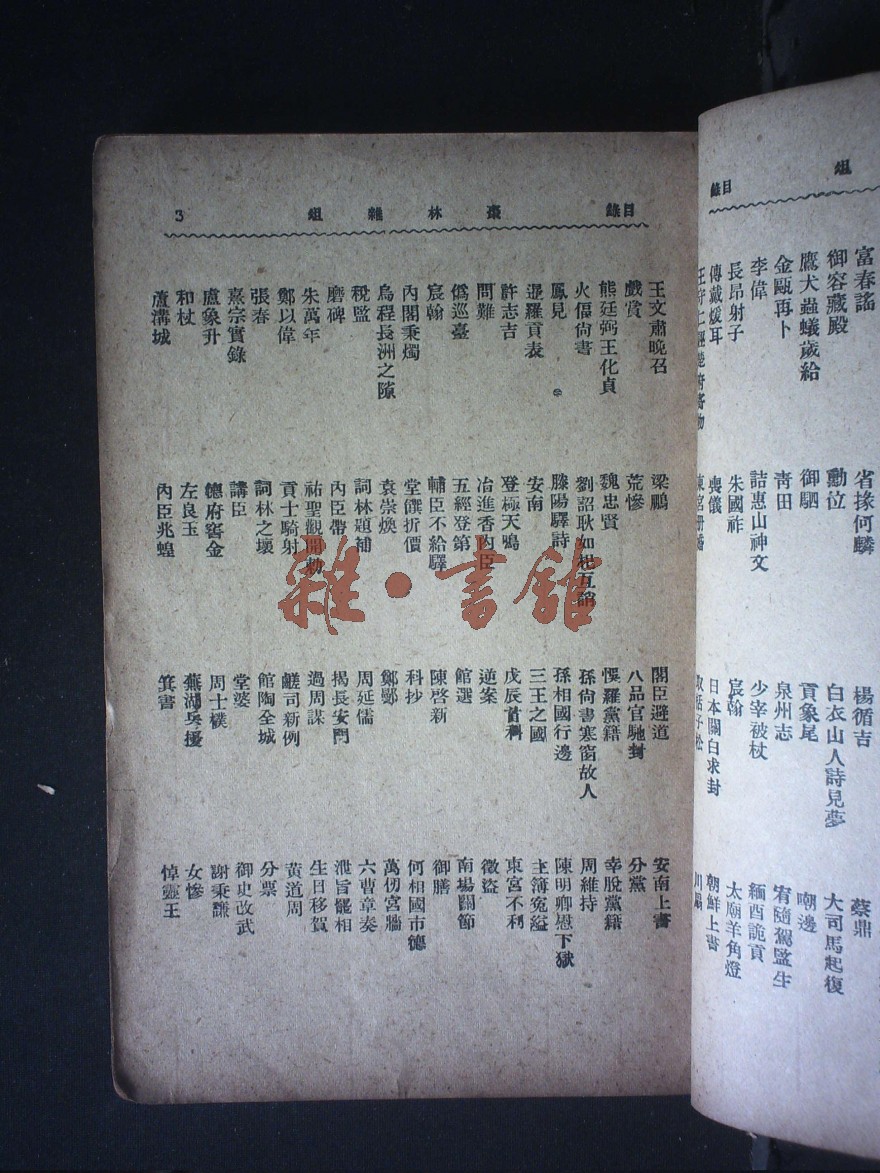 組
目錄
富春謠 省掾何麟 楊循吉 蔡鼎
御容藏殿 勳位 白衣山人詩見夢 大司馬起復
鷹犬蟲蟻歲給 御駟 貢象尾 嘲邊
金甌再卜 靑田 泉州志 宥隨駕監生
李偉 詰惠山神文 少宰被杖 緬酉詭貢
長昂射子 朱國祚 宸翰 太廟羊角燈
傳戴煖耳 喪儀 日本關白求封 朝鮮上書
目錄 棗林雜組 3
王文肅晚召 梁鵬 閣臣避道 安南上書
戲賞 荒慘 八品官馳封 分黨
熊廷弼王化貞 魏忠賢 悞羅黨籍 幸脫黨籍
火偪尙書 劉詔耿如杞互誚 孫尙書寒窗故人 周維持
鳳見 滕陽驛詩 孫相國行邊 陳明卿慰下獄
暹羅貢表 安南 三王之國 主簿寃溢
許志吉 登極天鳴 戊辰首科 東宮不利
問難 冶進香內臣 逆案 徵盜
僞巡臺 五經登第 館選 南場關節
宸翰 輔臣不給驛 陳啓新 御膳
內閣秉燭 堂饌折價 科抄 何相國市德
烏程長洲之隙 袁崇煥 鄭鄤 萬仞宮牆
稅監 詞林題補 周延儒 六曹章奏
磨碑 內臣帶 揭長安門 泄旨罷相
朱萬年 祐聖觀開勅 過周謀 生日移賀
鄭以偉 貢士騎射 鹺司新例 黃道周
張春 詞林之壞 館陶全城 分票
熹宗實錄 講臣 堂婆 御史改武
盧象升 德府窖金 周士樸 謝秉謙
和杖 左良玉 蕪湖吳援 女慘
蘆溝城 內臣兆蝗 箕書 悼靈王
雜·書館